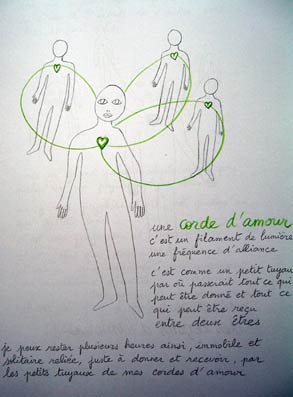 une corde d'amour
c'est un filament de lumière
une fréquence d'alliance
c'est comme un petit tuyau
par où passerait tout ce qui
peut être donné et tout ce
qui peut être reçu
entre deux êtres
je peux rester plusieurs heures ainsi, immobile et
solitaire reliée, juste à donner et recevoir, par
les petits tuyaux de mes cordes d'amour